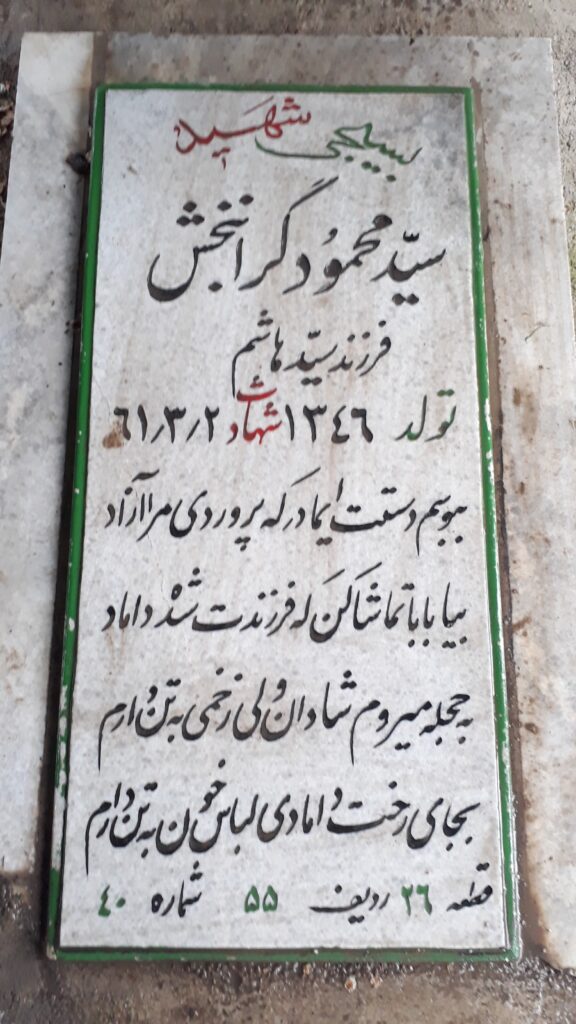 بسیجی شهید
سیّد محمود گرانبخش
فرزند سیّد هاشم
تولد ١٣٤٦ شهادت ٦١٫٣٫٢
ببوسم دستت ایمادر که پروردی مرا آزاد
بیا بابا تماشا کن که فرزندت شده داماد
به حجله میروم شادان ولی زخمی به تن دارم
بجای رخت دامادی لباس خون به تن دارم
قطعه ٢٦ ردیف ۵۵ شماره ٤٠